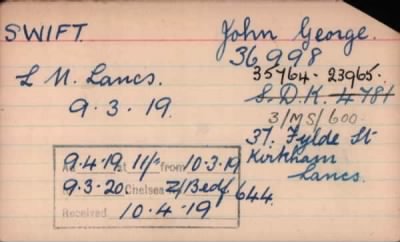 SWIFT. John George.
36998
35764 - 23965.
L N. Lancs. S.D.K. 4781
9.3.19. 3/MS/600
37. Fylde St
Kirkham
Lancs.
9.4.19 11/- from 10.3.19
9.3.20. Chelsea 2/Bedf 644.
Received 10.4.19